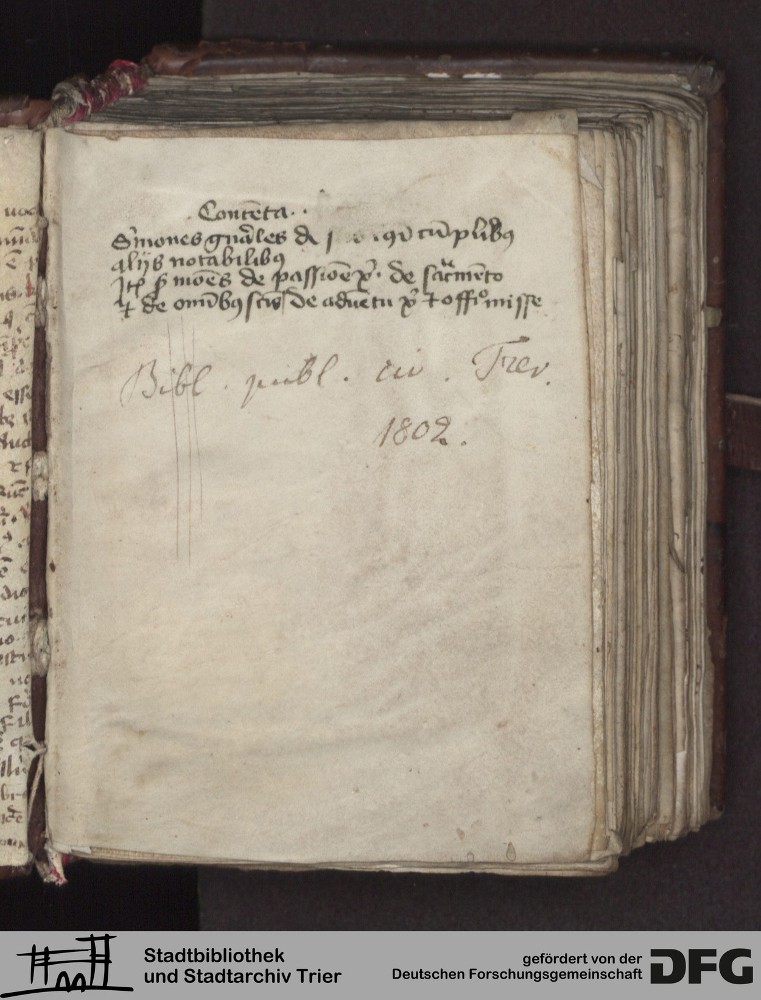 . Contēta . .
S'mones gn̄ales d cū plibꝯ
alijs notabilibꝯ
Itē s'moēs de passiōe xp̄i . de sacr̄mēto
⁊ de om̄ibꝯ sc̄is de aduētu xp̄i ⁊ offi° misse
Bibl . publ . civ . Trev.
1802.
Stadtbibliothek
und Stadtarchiv Trier
gefördert von der
Deutschen Forschungsgemeinschaft
DFG